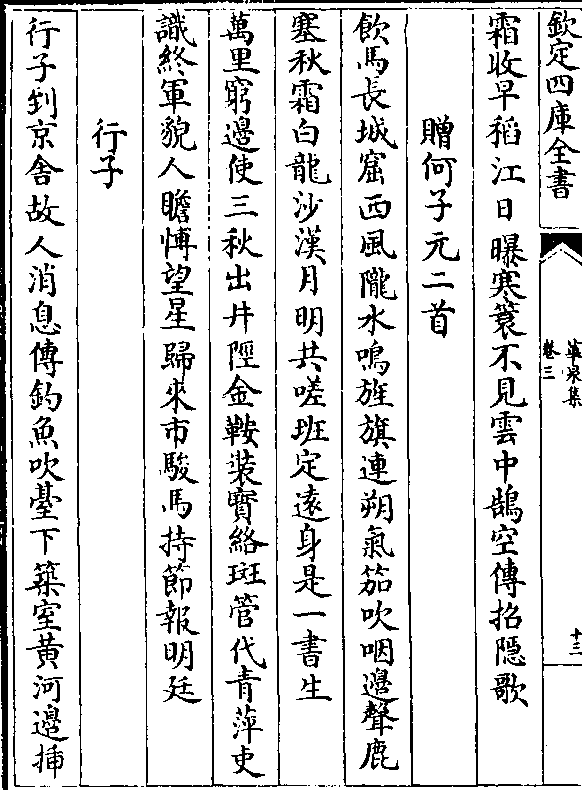 欽定四庫全書
華泉集
卷三
十三
霜收早稻江日曝寒蓑不見雲中鵠空傳招隱歌
贈何子元二首
飲馬長城窟西風隴水鳴旌旗連朔氣笳吹咽邊聲鹿
塞秋霜白龍沙漢月明共嗟班定遠身是一書生
萬里窮邊使三秋出井陘金鞍裝寳絡斑管代青萍吏
識終軍貌人瞻博望星歸來市駿馬持節報明廷
行子
行子到京舎故人消息傳釣魚吹臺下築室黄河邊挿